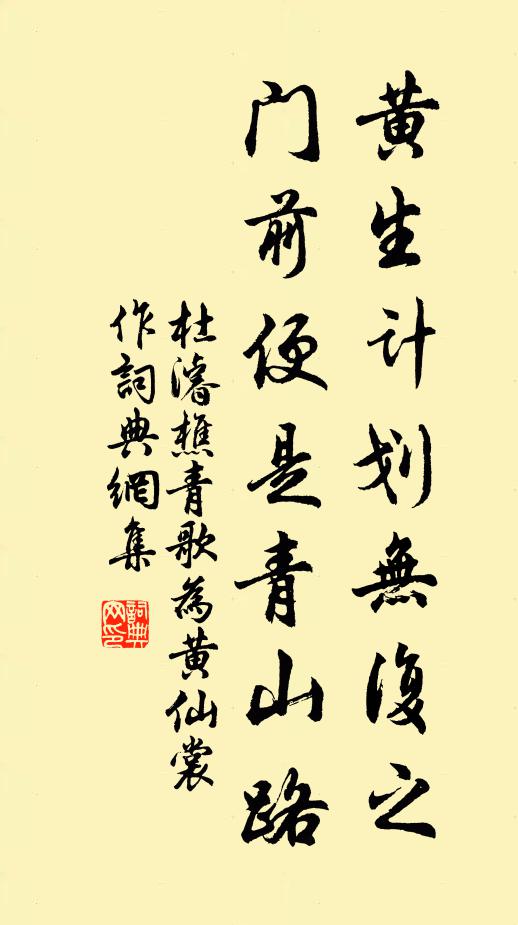 黄生计划無復之
门前便是青山路
杜濬樵青歌為黄仙裳
作詞典網集
詞典网印